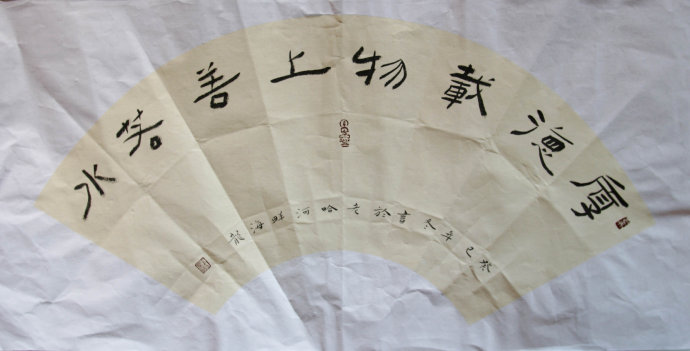 厚德載物上善若水
癸巳年冬書於老哈河畔海龍